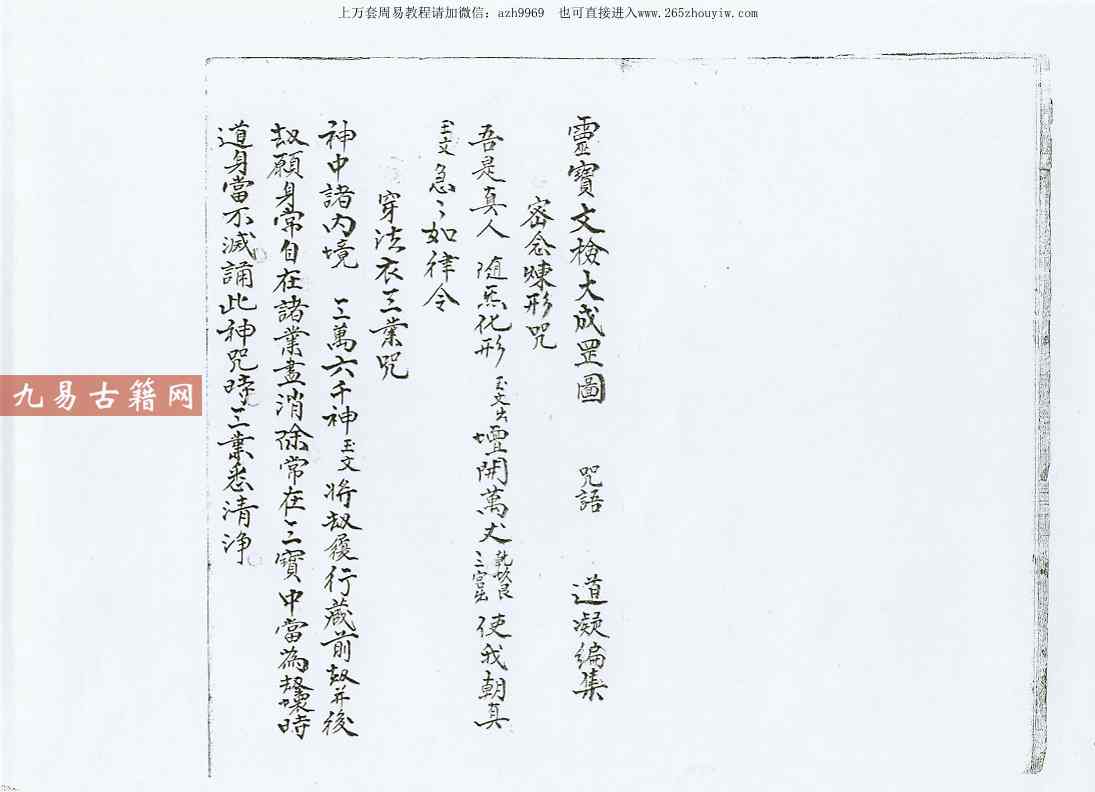 上万套周易教程请加微信：azh9969 也可直接进入www.265zhouyiw.com
靈寶文檢大成罡圖 咒語 道凝編集
密念煉形咒
吾是真人 隨炁化形 玉文出 壇開萬丈 乾坎艮三宮出 使我朝真
玉文 急〻如律令
穿法衣三業咒
神中諸內境 三萬六千神 玉文 將劫履行藏前劫并後
劫願身常自在諸業盡消除常在三寶中當為劫壞時
道身當不滅誦此神咒時三業悉清淨
九易古籍网